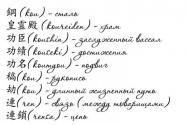 鋼(kou) - сталь
皇霊殿(koureiden) - храм
功臣(koushin) - заслуженный вассал
功績(kouseki) - достижения
功名(koumyou) - подвиг
稿(kou) - рукопись
劫(kou) - длинный жизненный путь
連(ren) - связь (между товарищами)
連鎖(renxa) - цепь